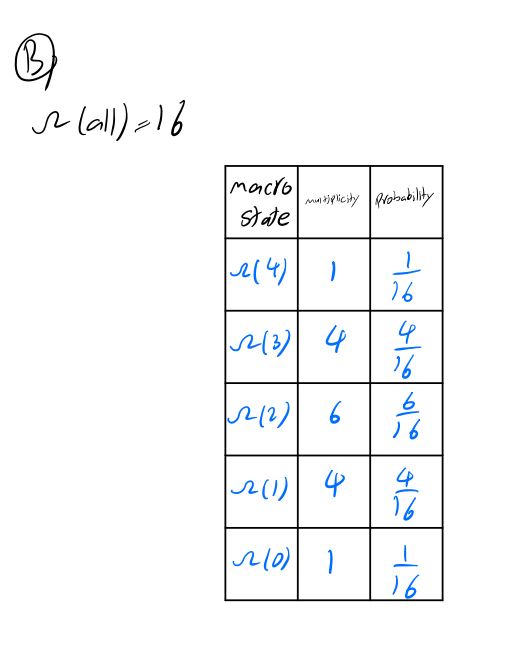 B)
Ω(all)=16
macro state | multiplicity | Probability
Ω(4) | 1 | 1/16
Ω(3) | 4 | 4/16
Ω(2) | 6 | 6/16
Ω(1) | 4 | 4/16
Ω(0) | 1 | 1/16